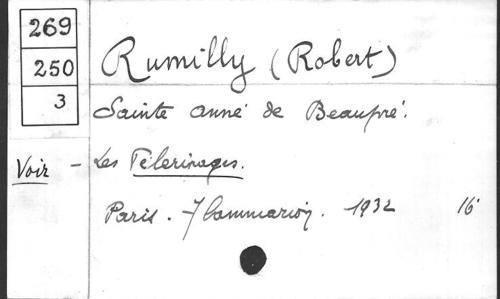 269
250
3
Rumilly (Robert)
Sainte Anné de Beaupré.
Voir - Les Pèlerinages.
Paris. Flammarion. 1932 16°